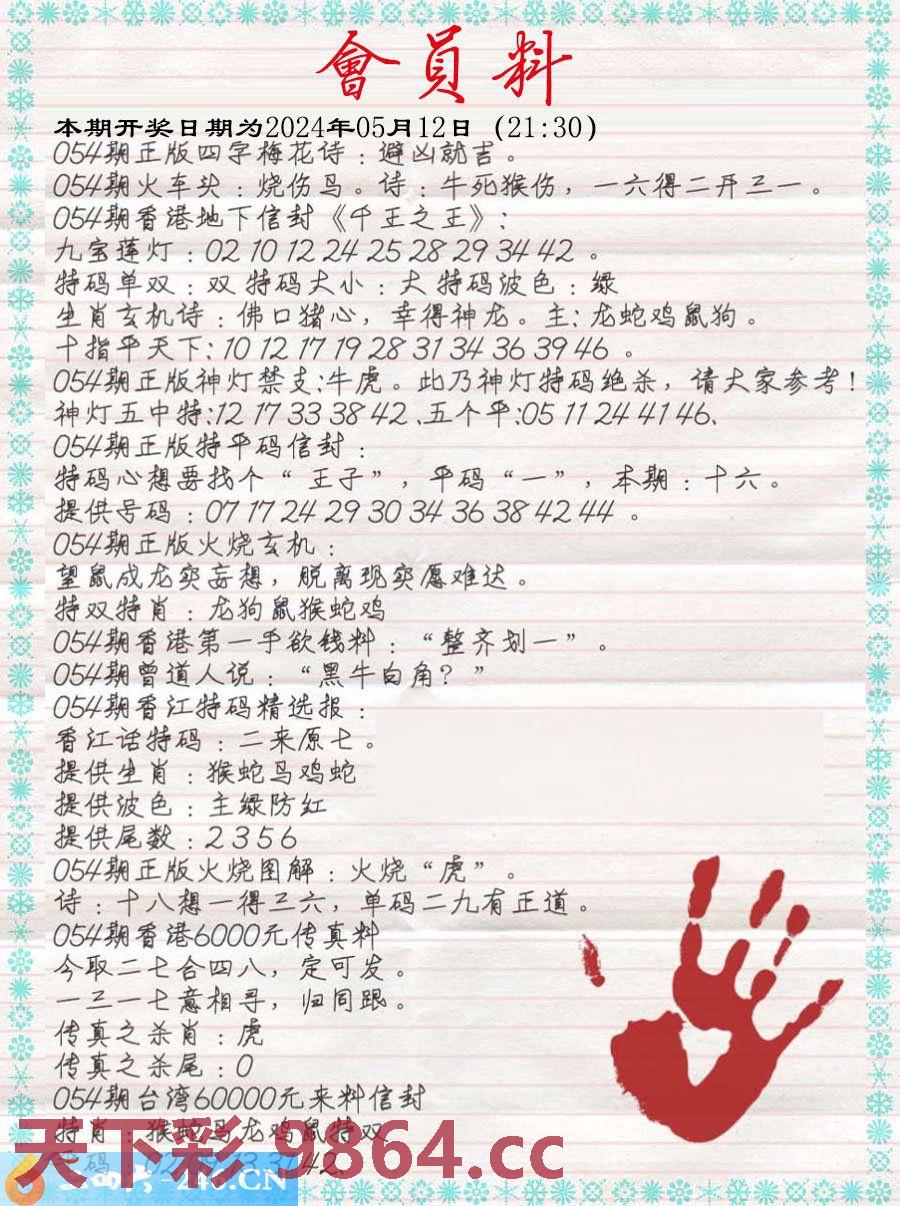 會員料
本期开奖日期为2024年05月12日（21:30）
054期正版四字梅花诗：避凶就吉。
054期火车头：烧伤鸟。诗：牛死猴伤，一六得二开三一。
054期香港地下信封《千王之王》：
九宝莲灯：02 10 12 24 25 28 29 34 42 。
特码单双：双 特码大小：大 特码波色：绿
生肖玄机诗：佛口猪心，幸得神龙。主：龙蛇鸡鼠狗。
十指平天下：10 12 17 19 28 31 34 36 39 46 。
054期正版神灯禁支：牛虎。此乃神灯特码绝杀，请大家参考！
神灯五中特：12 17 33 38 42 .五个平：05 11 24 41 46.
054期正版特平码信封：
特码心想要找个“王子”，平码“一”，本期：十六。
提供号码：07 17 24 29 30 34 36 38 42 44 。
054期正版火烧玄机：
望鼠成龙实妄想，脱离现实愿难达。
特双特肖：龙狗鼠猴蛇鸡
054期香港第一手欲钱料：“整齐划一”。
054期曾道人说：“黑牛白角？”
054期香江特码精选报：
香江话特码：二来原七。
提供生肖：猴蛇马鸡蛇
提供波色：主绿防红
提供尾数：2 3 5 6
054期正版火烧图解：火烧“虎”。
诗：十八想一得三六，单码二九有正道。
054期香港6000元传真料
今取二七合四八，定可发。
一三一七意相寻，归同跟。
传真之杀肖：虎
传真之杀尾：0
054期台湾60000元来料信封
特肖：猴蛇马龙鸡鼠特双
天下彩 9864.cc
-246.CN